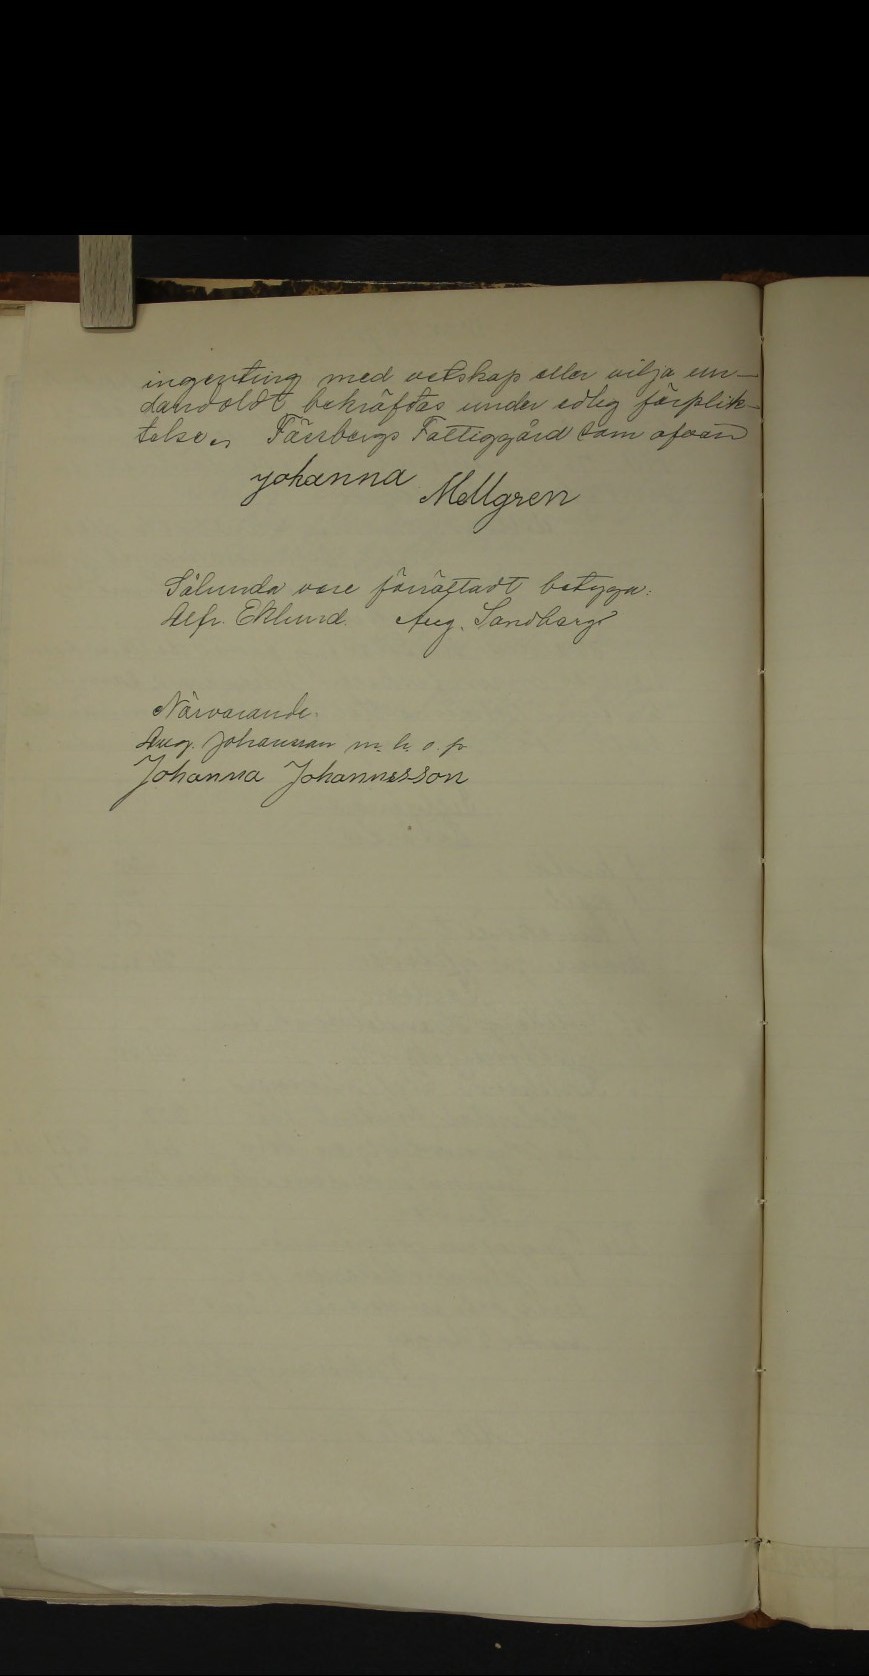 ingenting med vetskap eller vilja un-
danhöldt bekräftas under edlig förplik-
telse, Färsbergs Fattiggård som ofvan
Johanna Mellgren
Sålunda vare förrättadt betyga:
Alfr. Eklund. Aug. Sandberg
Närvarande.
Aug. Johansson m. h. o. p
Johanna Johannesson